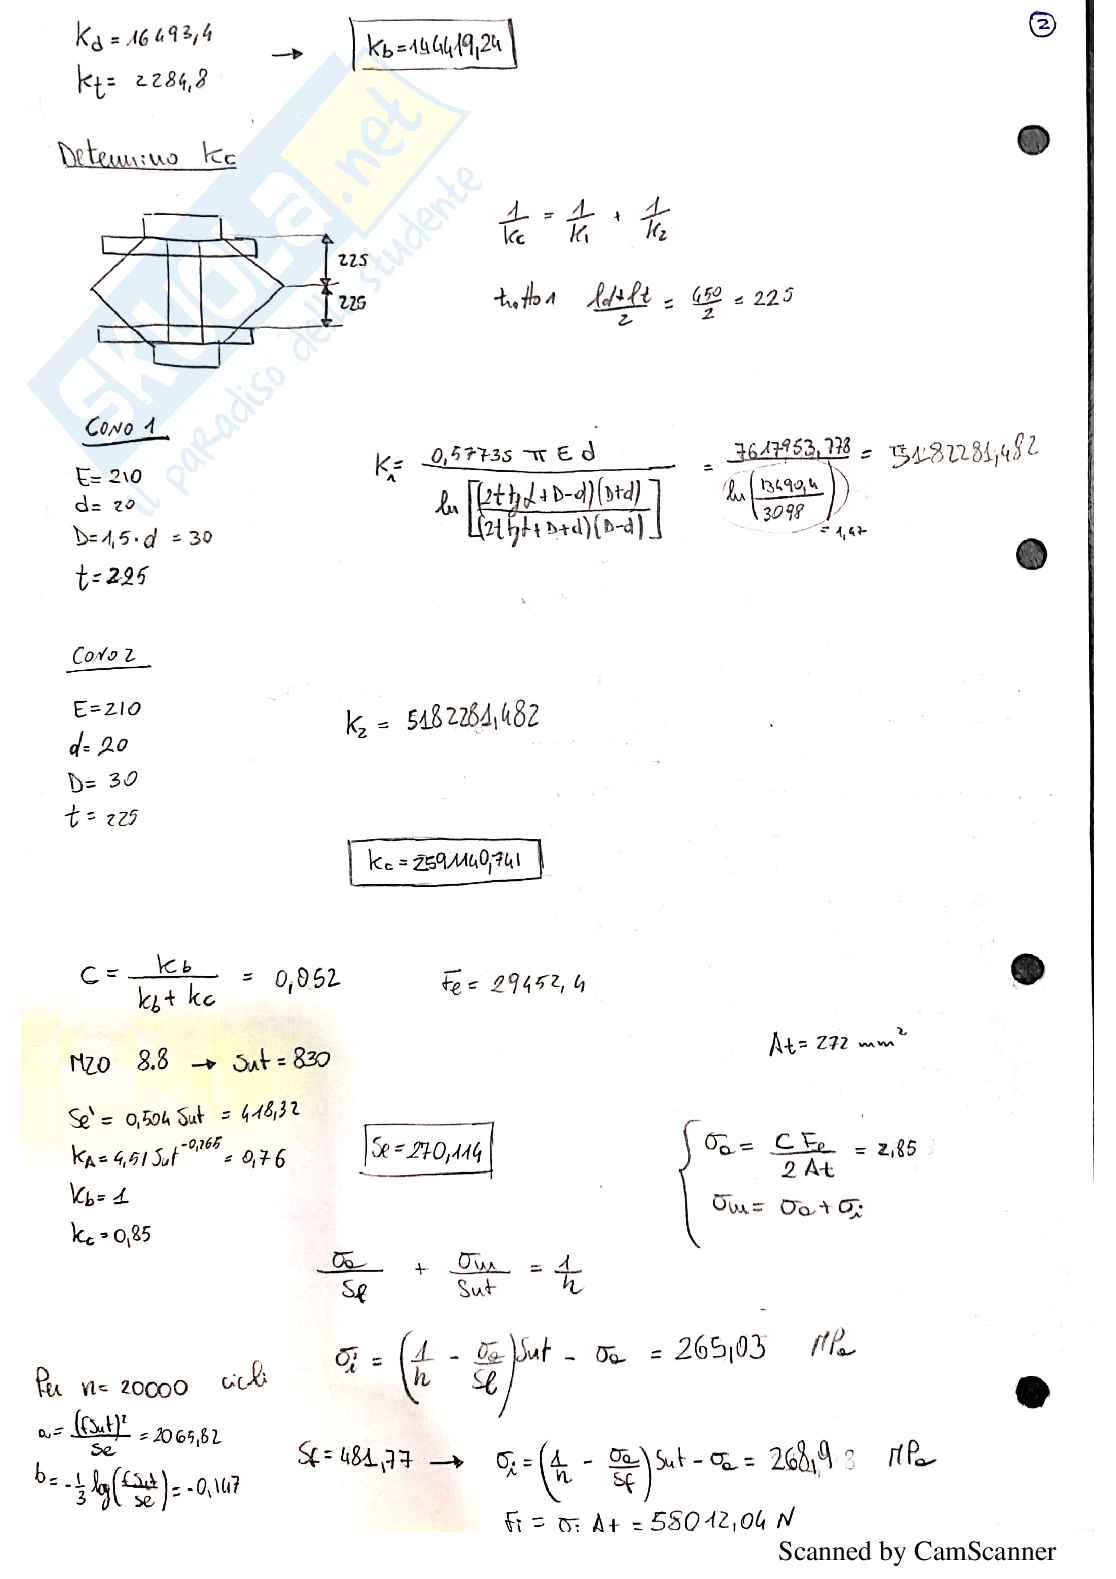 2
Kd = 16493,4
→ Kb = 144419,24
Kt = 2284,8
Determino Kc
1/Kc = 1/K1 + 1/K2
225
225
tratto 1 (ld+lt)/2 = 450/2 = 225
CONO 1
E = 210
d = 20
D = 1,5·d = 30
t = 225
K1 = 0,57735 π E d / ln[(2t tgα + D-d)(D+d) / (2t tgα + D+d)(D-d)] = 7617953,778 / ln(13490,4 / 3098) = 5182281,482
= 1,47
CONO 2
E = 210
d = 20
D = 30
t = 225
K2 = 5182281,482
Kc = 2591140,741
C = Kb / (Kb + Kc) = 0,052
Fe = 29452,4
At = 272 mm²
M20 8.8 → Sut = 830
Se' = 0,504 Sut = 418,32
KA = 4,51 Sut^-0,265 = 0,76
Kb = 1
Kc = 0,85
Se = 270,114
σa = C Fe / 2 At = 2,85
σm = σa + σi
σa/Sf + σm/Sut = 1/n
σi = (1/n - σa/Sf) Sut - σa = 265,03 MPa
Per n = 20000 cicli
a = (f Sut)²/Se = 2065,82
b = -1/3 log(f Sut/Se) = -0,147
Sf = 481,77 → σi = (1/n - σa/Sf) Sut - σa = 268,93 MPa
Fi = σi At = 58012,04 N
SKUOLA.net
il paradiso dello studente
Scanned by CamScanner